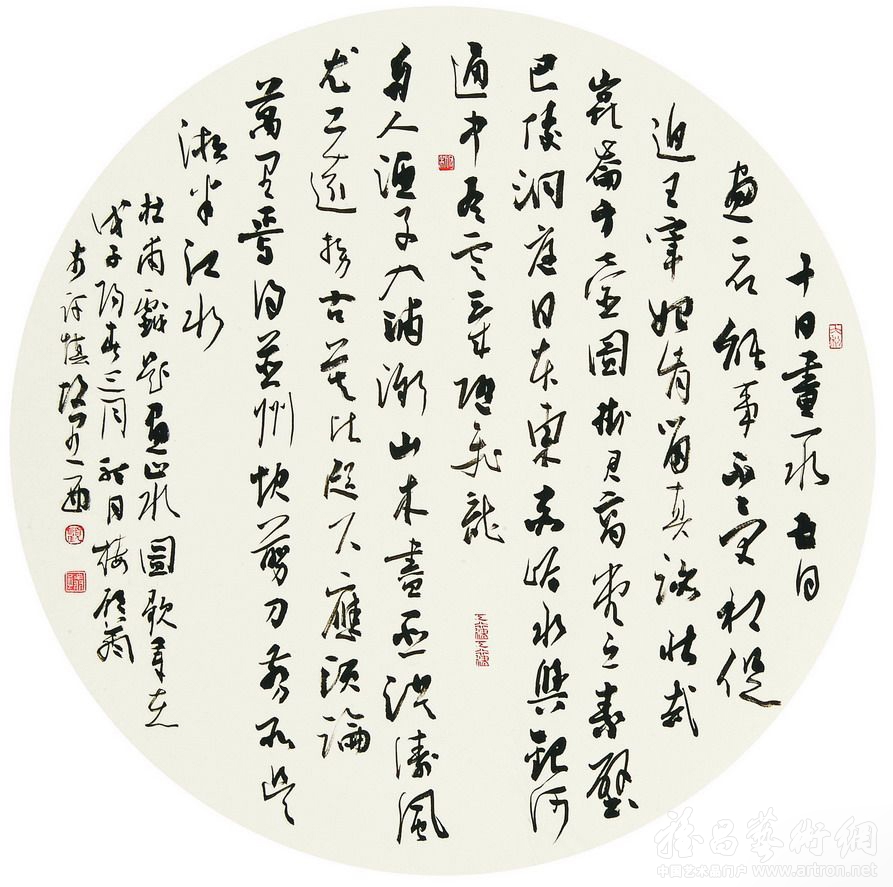 十日畫一水五日
畫一石能事不受相促
迫王宰始肯留真跡壯哉
崑崙方壺圖掛君高堂之素壁
巴陵洞庭日本東赤岸水與銀河
通中有雲氣隨飛龍
舟人漁子入浦漵山木盡亞洪濤風
尤工遠勢古莫比咫尺應須論
萬里焉得并州快剪刀剪取吳
淞半江水
杜甫戲題畫山水圖歌
戊子陽春三月
雅昌藝術網
中国艺术品门户 www.artron.net